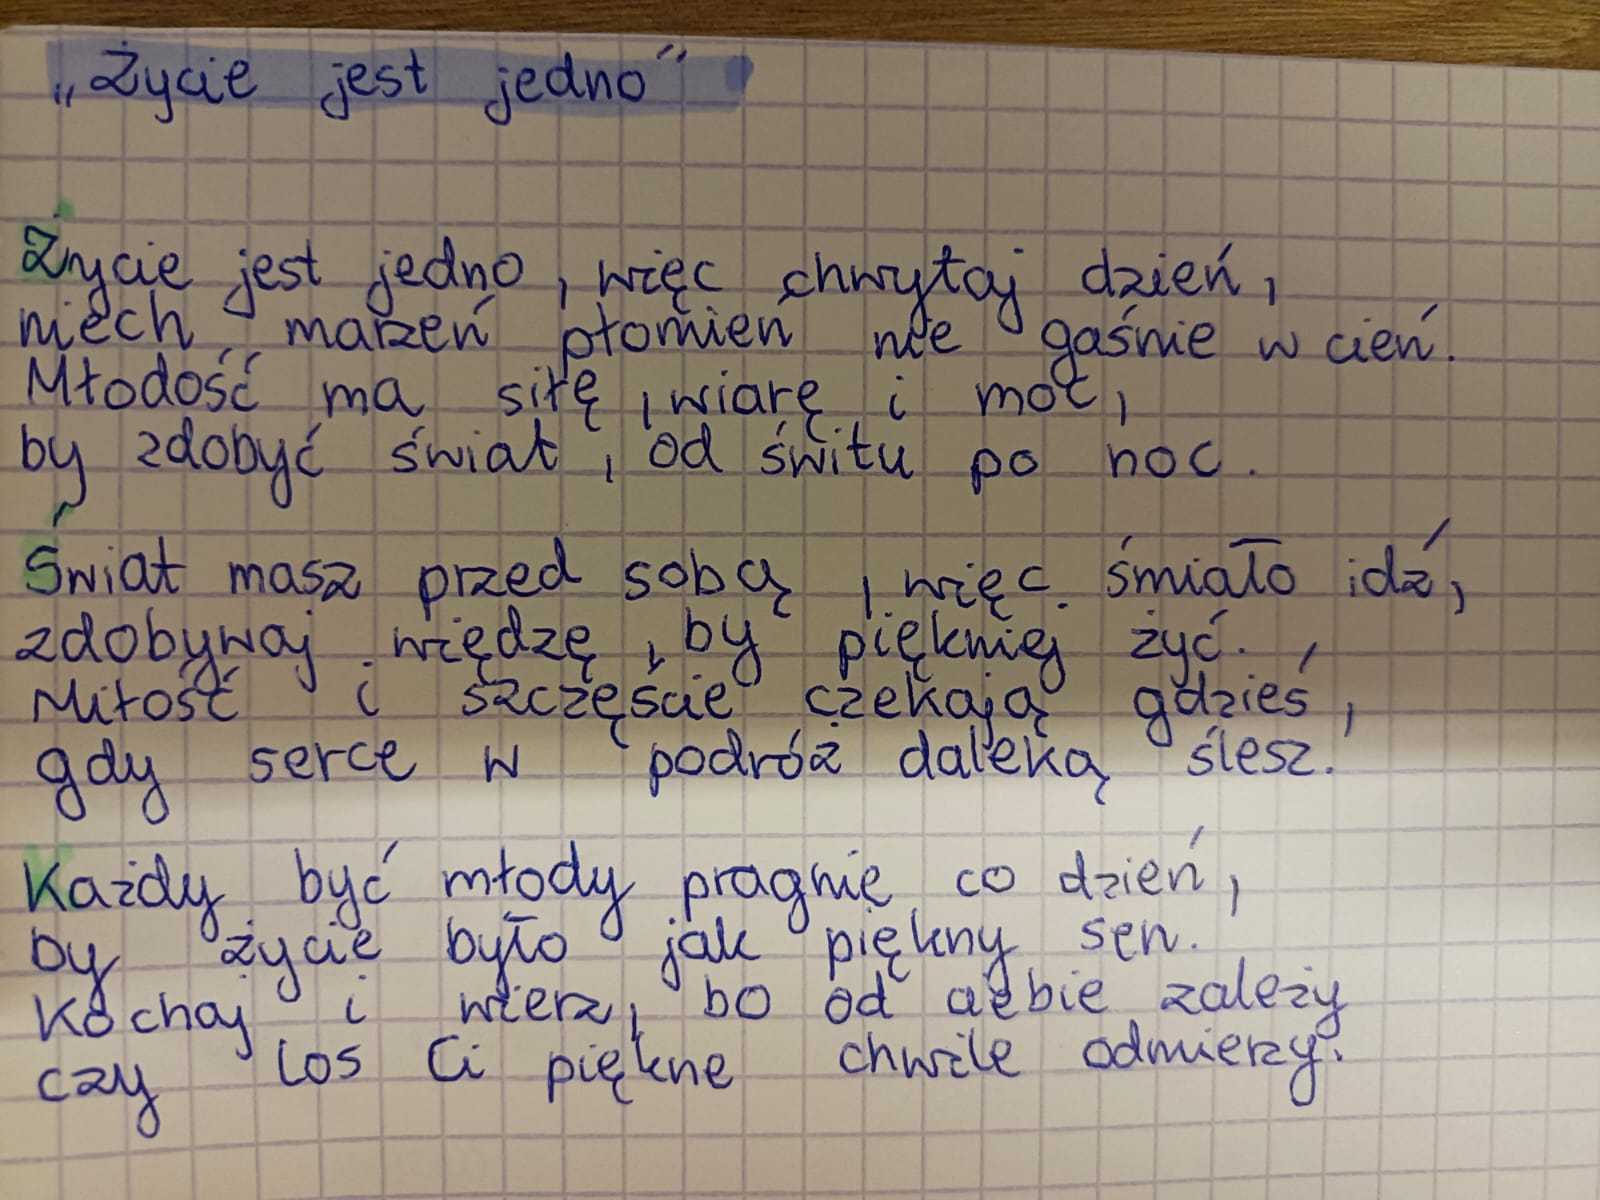 „Życie jest jedno"
Życie jest jedno, więc chwytaj dzień,
niech marzeń płomień nie gaśnie w cień.
Młodość ma siłę, wiarę i moc,
by zdobyć świat, od świtu po noc.
Świat masz przed sobą, więc śmiało idź,
zdobywaj wiedzę, by piękniej żyć.
Miłość i szczęście czekają gdzieś,
gdy serce w podróż daleką ślesz.
Każdy być młody pragnie co dzień,
by życie było jak piękny sen.
Kochaj i wierz, bo od ciebie zależy
czy los Ci piękne chwile odmierzy.